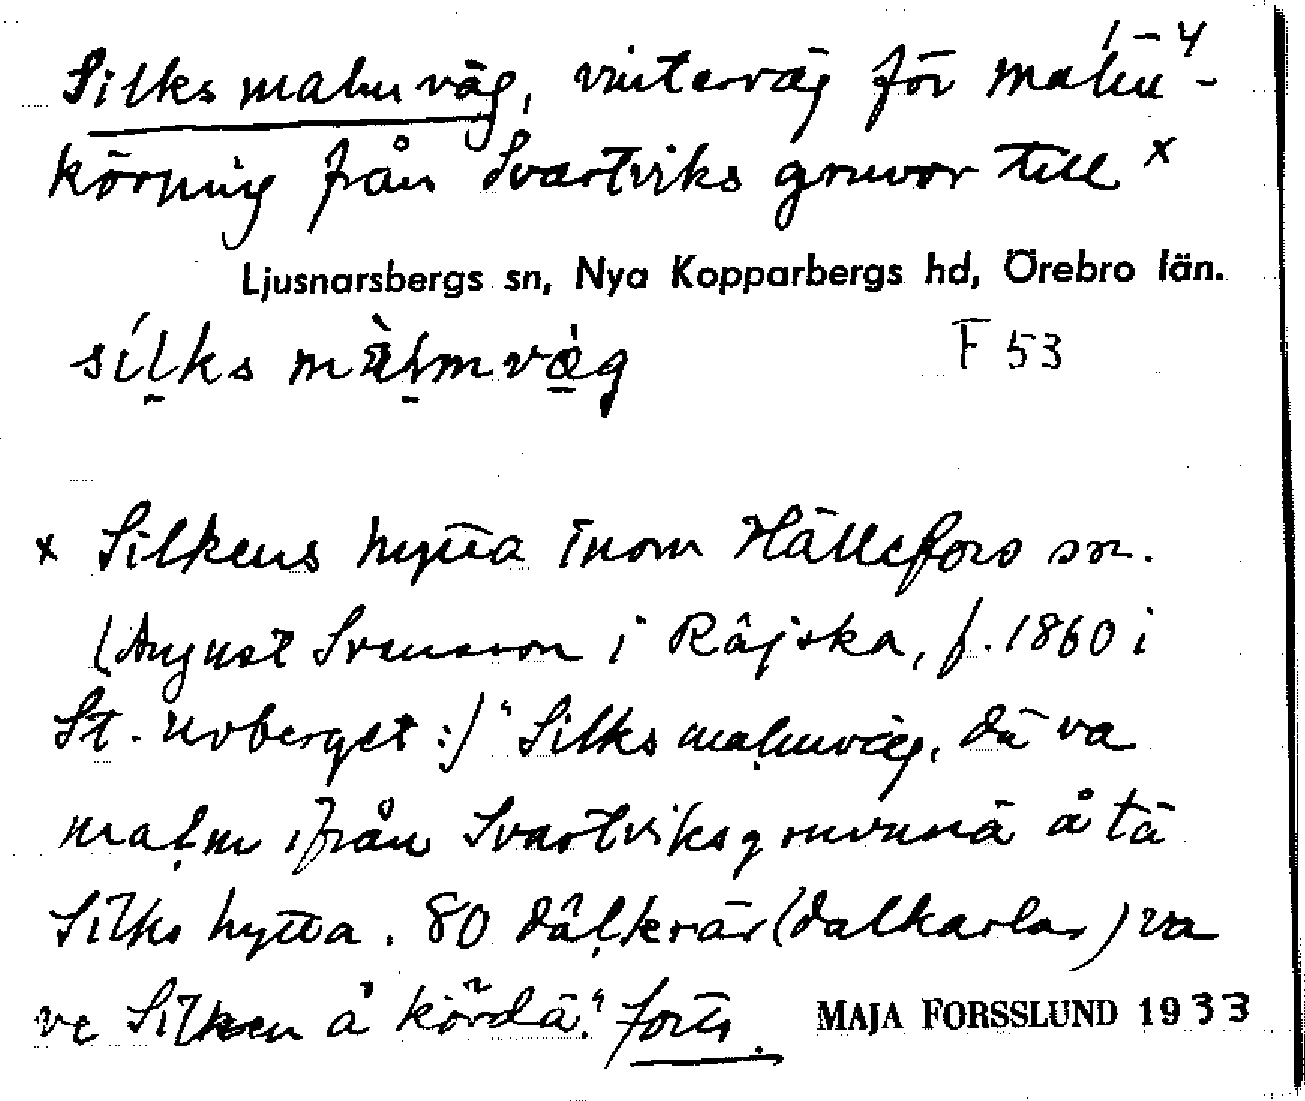 1-4
Silks malmväg, vinterväg för malm-
körning från Svartviks gruvor till x
Ljusnarsbergs sn, Nya Kopparbergs hd, Örebro län.
silks màlmvæ̀g F 53
x Silkens hytta inom Hällefors sn.
(August Svensson i Råjska, f. 1860 i
St. Uvberget :) "Silks malmväg, dä va
malm ifrån Svartviksgruvunä å tä
Silks hytta. 80 dâlkrär (dalkarlar) va
ve Silken å kördä." forts.
MAJA FORSSLUND 1933